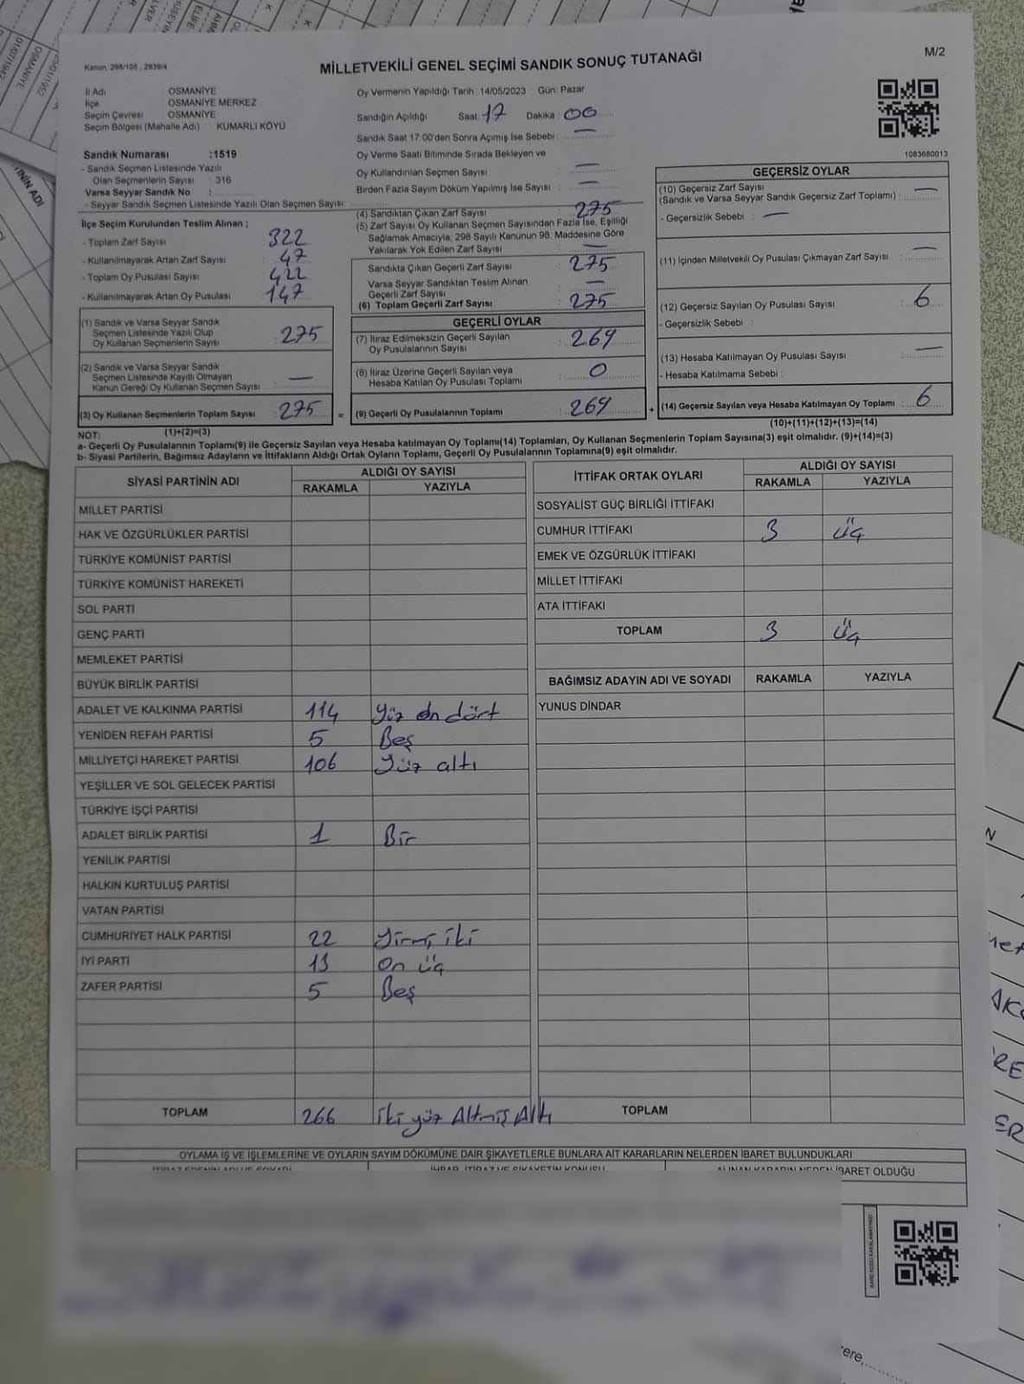 Kanun, 298/105 , 2839/4
MİLLETVEKİLİ GENEL SEÇİMİ SANDIK SONUÇ TUTANAĞI
M/2
İl Adı OSMANİYE
İlçe OSMANİYE MERKEZ
Seçim Çevresi OSMANİYE
Seçim Bölgesi (Mahalle Adı) KUMARLI KÖYÜ
Sandık Numarası :1519
- Sandık Seçmen Listesinde Yazılı
Olan Seçmenlerin Sayısı : 316
Varsa Seyyar Sandık No :
- Seyyar Sandık Seçmen Listesinde Yazılı Olan Seçmen Sayısı:
Oy Vermenin Yapıldığı Tarih :14/05/2023 Gün: Pazar
Sandığın Açıldığı Saat: 17 Dakika: 00
Sandık Saat 17:00'den Sonra Açılmış İse Sebebi : —
Oy Verme Saati Bitiminde Sırada Bekleyen ve
Oy Kullandırılan Seçmen Sayısı : —
Birden Fazla Sayım Döküm Yapılmış İse Sayısı : —
1083680013
İlçe Seçim Kurulundan Teslim Alınan ;
- Toplam Zarf Sayısı 322
- Kullanılmayarak Artan Zarf Sayısı : 47
- Toplam Oy Pusulası Sayısı : 422
- Kullanılmayarak Artan Oy Pusulası 147
(1) Sandık ve Varsa Seyyar Sandık
Seçmen Listesinde Yazılı Olup
Oy Kullanan Seçmenlerin Sayısı : 275
(2) Sandık ve Varsa Seyyar Sandık
Seçmen Listesinde Kayıtlı Olmayan
Kanun Gereği Oy Kullanan Seçmen Sayısı : —
(3) Oy Kullanan Seçmenlerin Toplam Sayısı : 275 =
(1)+(2)=(3)
(4) Sandıktan Çıkan Zarf Sayısı : 275
(5) Zarf Sayısı Oy Kullanan Seçmen Sayısından Fazla İse, Eşitliği
Sağlamak Amacıyla, 298 Sayılı Kanunun 98. Maddesine Göre
Yakılarak Yok Edilen Zarf Sayısı : —
Sandıkta Çıkan Geçerli Zarf Sayısı : 275
Varsa Seyyar Sandıktan Teslim Alınan
Geçerli Zarf Sayısı : —
(6) Toplam Geçerli Zarf Sayısı : 275
GEÇERLİ OYLAR
(7) İtiraz Edilmeksizin Geçerli Sayılan
Oy Pusulalarının Sayısı : 269
(8) İtiraz Üzerine Geçerli Sayılan veya
Hesaba Katılan Oy Pusulası Toplamı : 0
(9) Geçerli Oy Pusulalarının Toplamı : 269 +
GEÇERSİZ OYLAR
(10) Geçersiz Zarf Sayısı
(Sandık ve Varsa Seyyar Sandık Geçersiz Zarf Toplamı) : —
- Geçersizlik Sebebi : —
(11) İçinden Milletvekili Oy Pusulası Çıkmayan Zarf Sayısı : —
(12) Geçersiz Sayılan Oy Pusulası Sayısı : 6
- Geçersizlik Sebebi :
(13) Hesaba Katılmayan Oy Pusulası Sayısı : —
- Hesaba Katılmama Sebebi :
(14) Geçersiz Sayılan veya Hesaba Katılmayan Oy Toplamı : 6
(10)+(11)+(12)+(13)=(14)
NOT:
a- Geçerli Oy Pusulalarının Toplamı(9) ile Geçersiz Sayılan veya Hesaba katılmayan Oy Toplamı(14) Toplamları, Oy Kullanan Seçmenlerin Toplam Sayısına(3) eşit olmalıdır. (9)+(14)=(3)
b- Siyasi Partilerin, Bağımsız Adayların ve İttifakların Aldığı Ortak Oyların Toplamı, Geçerli Oy Pusulalarının Toplamına(9) eşit olmalıdır.
SİYASİ PARTİNİN ADI ALDIĞI OY SAYISI
RAKAMLA YAZIYLA
MİLLET PARTİSİ
HAK VE ÖZGÜRLÜKLER PARTİSİ
TÜRKİYE KOMÜNİST PARTİSİ
TÜRKİYE KOMÜNİST HAREKETİ
SOL PARTİ
GENÇ PARTİ
MEMLEKET PARTİSİ
BÜYÜK BİRLİK PARTİSİ
ADALET VE KALKINMA PARTİSİ 114 Yüz on dört
YENİDEN REFAH PARTİSİ 5 Beş
MİLLİYETÇİ HAREKET PARTİSİ 106 Yüz altı
YEŞİLLER VE SOL GELECEK PARTİSİ
TÜRKİYE İŞÇİ PARTİSİ
ADALET BİRLİK PARTİSİ 1 Bir
YENİLİK PARTİSİ
HALKIN KURTULUŞ PARTİSİ
VATAN PARTİSİ
CUMHURİYET HALK PARTİSİ 22 Yirmi iki
İYİ PARTİ 13 On üç
ZAFER PARTİSİ 5 Beş
TOPLAM 266 İki yüz Altmış Altı
İTTİFAK ORTAK OYLARI ALDIĞI OY SAYISI
RAKAMLA YAZIYLA
SOSYALİST GÜÇ BİRLİĞİ İTTİFAKI
CUMHUR İTTİFAKI 3 Üç
EMEK VE ÖZGÜRLÜK İTTİFAKI
MİLLET İTTİFAKI
ATA İTTİFAKI
TOPLAM 3 Üç
BAĞIMSIZ ADAYIN ADI VE SOYADI RAKAMLA YAZIYLA
YUNUS DİNDAR
TOPLAM
OYLAMA İŞ VE İŞLEMLERİNE VE OYLARIN SAYIM DÖKÜMÜNE DAİR ŞİKAYETLERLE BUNLARA AİT KARARLARIN NELERDEN İBARET BULUNDUKLARI
İHBAR, İTİRAZ VE ŞİKAYETİN KONUSU
ALINAN KARARIN NEDEN İBARET OLDUĞU